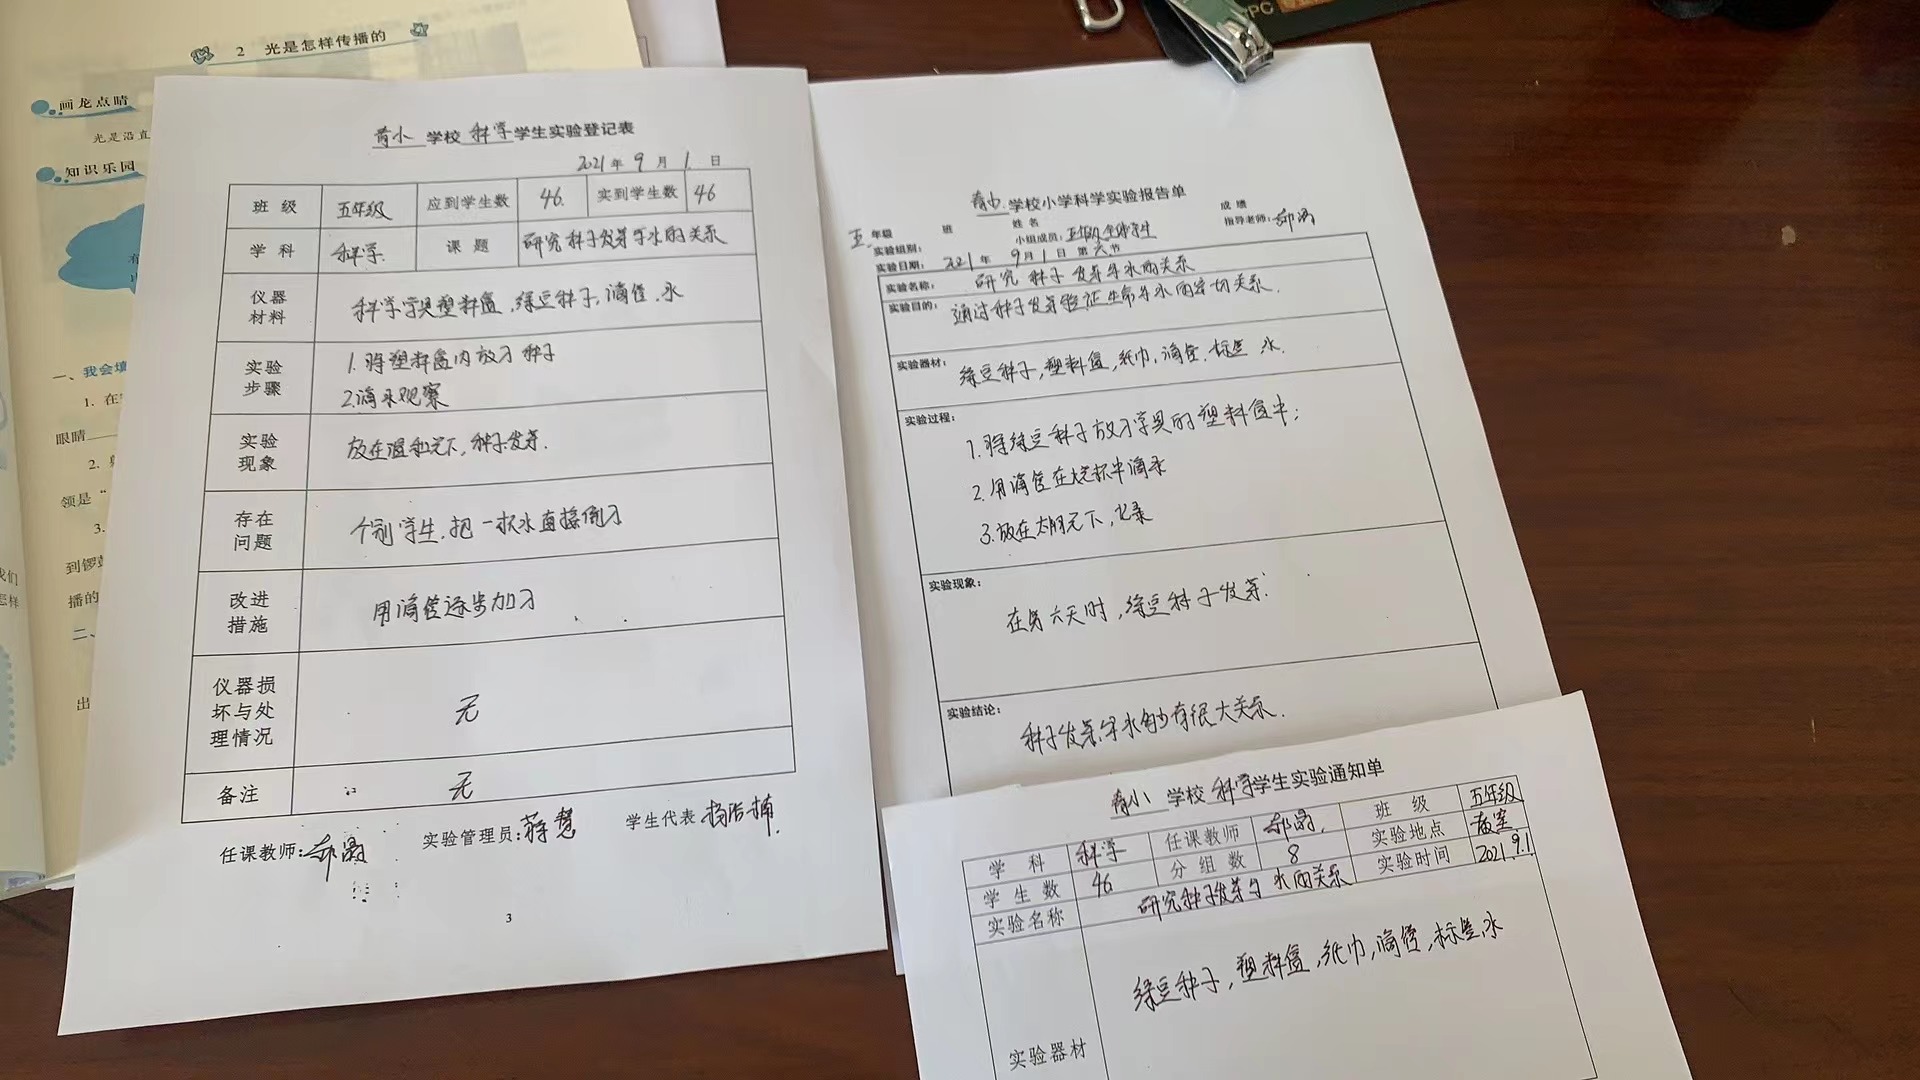 2 光是怎样传播的
画龙点睛
光是沿直
知识乐园
一、我会填
1. 在
眼睛
2.
领是“
3.
到锣
播的
二、
出
我们
怎样
育小 学校 科学 学生实验登记表
2021 年 9 月 1 日
班 级 五年级 应到学生数 46. 实到学生数 46
学 科 科学 课 题 研究种子发芽与水的关系
仪器
材料
科学学具塑料盒,绿豆种子,滴管,水
实验
步骤
1. 将塑料盒内放入种子
2.滴水观察
实验
现象
放在温和光下,种子发芽.
存在
问题
个别学生,把一杯水直接倒入
改进
措施
用滴管逐步加入
仪器损
坏与处
理情况
无
备注 无
任课教师: 实验管理员:蒋慧 学生代表
3
育小 学校小学科学实验报告单
五 年级 班 姓名 成绩
实验组别: 小组成员:五年级全体学生 指导老师:
实验日期: 2021 年 9 月 1 日 第 六 节
实验名称: 研究种子发芽与水的关系
实验目的: 通过种子发芽验证生命与水的密切关系.
实验器材: 绿豆种子,塑料盒,纸巾,滴管,标签 水.
实验过程:
1. 将绿豆种子放入学具的塑料盒中;
2. 用滴管在烧杯中滴水
3.放在太阳光下,记录
实验现象:
在第六天时,绿豆种子发芽.
实验结论:
种子发芽与水的多有很大关系.
育小 学校 科学 学生实验通知单
学 科 科学 任课教师 班 级 五年级
学 生 数 46 分 组 数 8 实验地点 教室
实验时间 2021.9.1
实验名称 研究种子发芽与水的关系
实验器材
绿豆种子,塑料盒,纸巾,滴管,标签,水